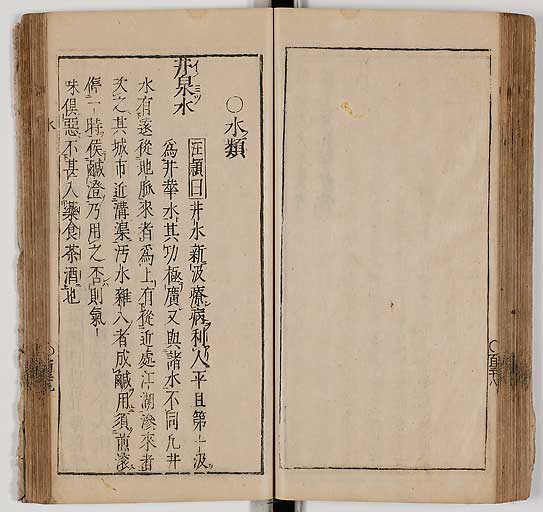 ○水類
井泉水
汪頴曰井水新汲療病利人平旦第一汲
為井華水其功極廣又與諸水不同凡井
水有遠從地脉來者為上有從近處江湖滲來者
次之其城市近溝渠汚水雜入者成鹹用須煎滾
停一時候鹹澄乃用之否則氣
味俱惡不甚入藥食茶酒也